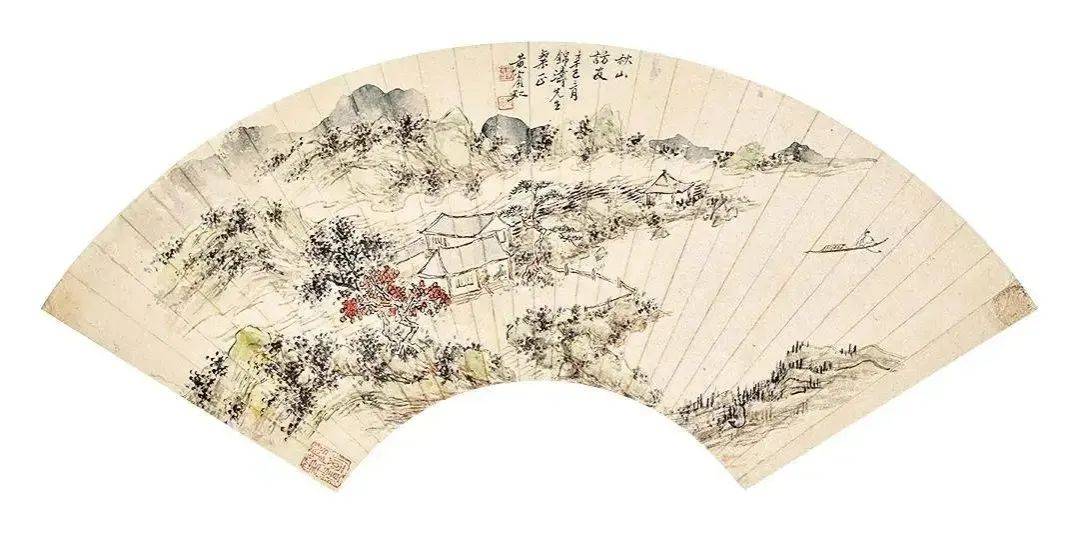 秋山
訪友
辛巳二月
錦濤先生
棐正
黃賓虹